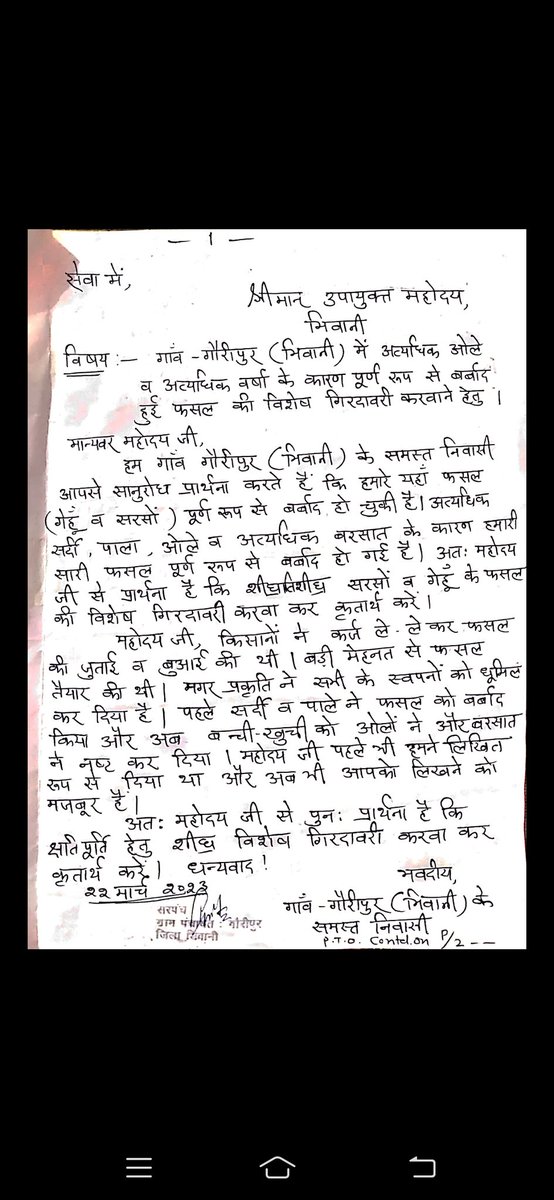 — 1 —
सेवा में,
श्रीमान उपायुक्त महोदय,
भिवानी
विषय :— गाँव - गौरीपुर (भिवानी) में अत्याधिक ओले
व अत्याधिक वर्षा के कारण पूर्ण रूप से बर्बाद
हुई फसल की विशेष गिरदावरी करवाने हेतु ।
मान्यवर महोदय जी,
हम गाँव गौरीपुर (भिवानी) के समस्त निवासी
आपसे सानुरोध प्रार्थना करते हैं कि हमारे यहाँ फसल
(गेहूँ व सरसों) पूर्ण रूप से बर्बाद हो चुकी है। अत्याधिक
सर्दी, पाला, ओले व अत्याधिक बरसात के कारण हमारी
सारी फसल पूर्ण रूप से बर्बाद हो गई है। अतः महोदय
जी से प्रार्थना है कि शीघ्रातिशीघ्र सरसों व गेहूँ के फसल
की विशेष गिरदावरी करवा कर कृतार्थ करें।
महोदय जी, किसानों ने कर्ज ले-लेकर फसल
की जुताई व बुआई की थी। बड़ी मेहनत से फसल
तैयार की थी। मगर प्रकृति ने सभी के स्वपनों को धूमिल
कर दिया है। पहले सर्दी व पाले ने फसल को बर्बाद
किया और अब बच्ची-खुची को ओलों ने और बरसात
ने नष्ट कर दिया। महोदय जी पहले भी हमने लिखित
रूप से दिया था और अब भी आपको लिखने को
मजबूर हैं।
अतः महोदय जी से पुनः प्रार्थना है कि
क्षतिपूर्ति हेतु शीघ्र विशेष गिरदावरी करवा कर
कृतार्थ करें। धन्यवाद!
भवदीय,
22 मार्च 2023
गाँव - गौरीपुर (भिवानी) के
समस्त निवासी
सरपंच
ग्राम पंचायत : गौरीपुर
जिला भिवानी
P.T.O. Contd. on P/2 --